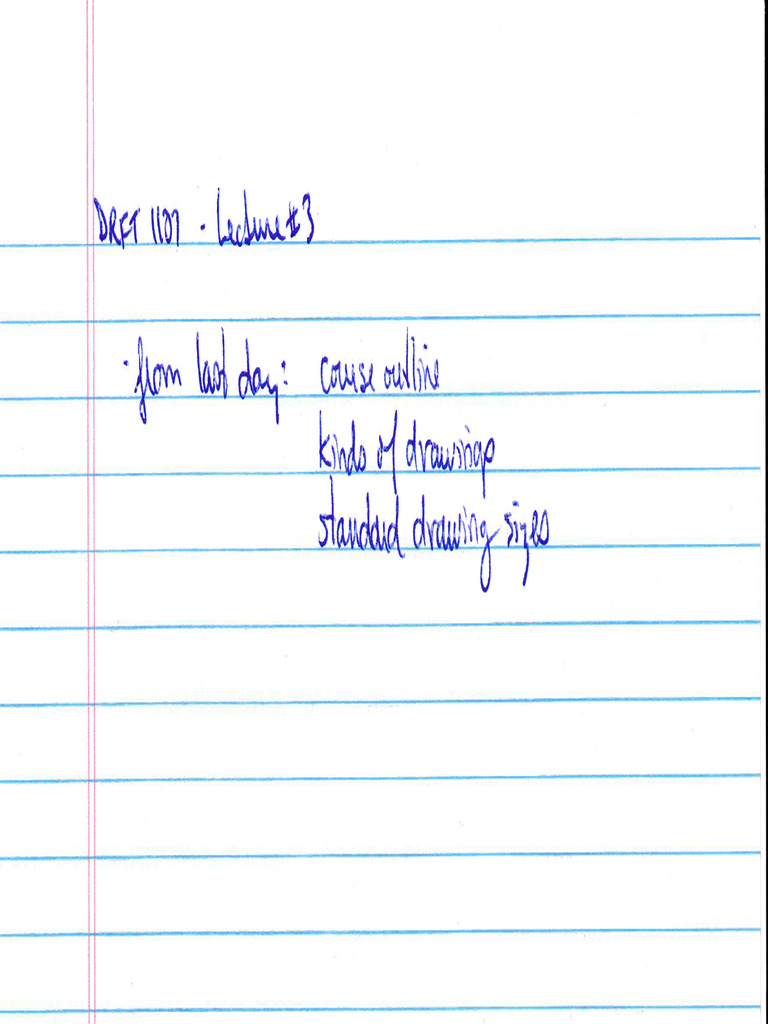 DRFT 1107 - Lecture #3
- from last day: course outline
kinds of drawings
standard drawing sizes